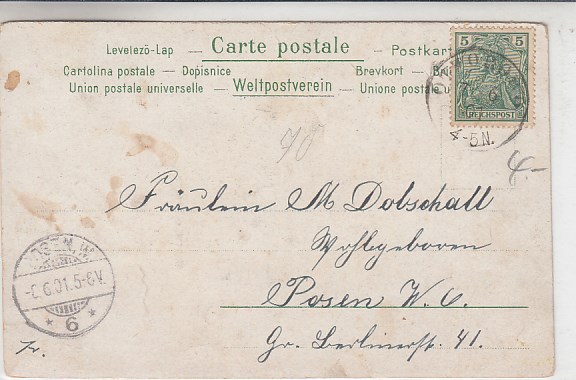 Levelezö-Lap — Carte postale — Postkart
Cartolina postale — Dopisnice Brevkort — Br
Union postale universelle — Weltpostverein — Unione postale u
5 5
REICHSPOST
4-5N.
70
4.-
Fräulein M Dobschall
Wohlgeboren
Posen W. O.
Gr. Berlinerstr. 41.
POSEN. W.
-6.6.01.5-6V.
* 6 *
Fr.